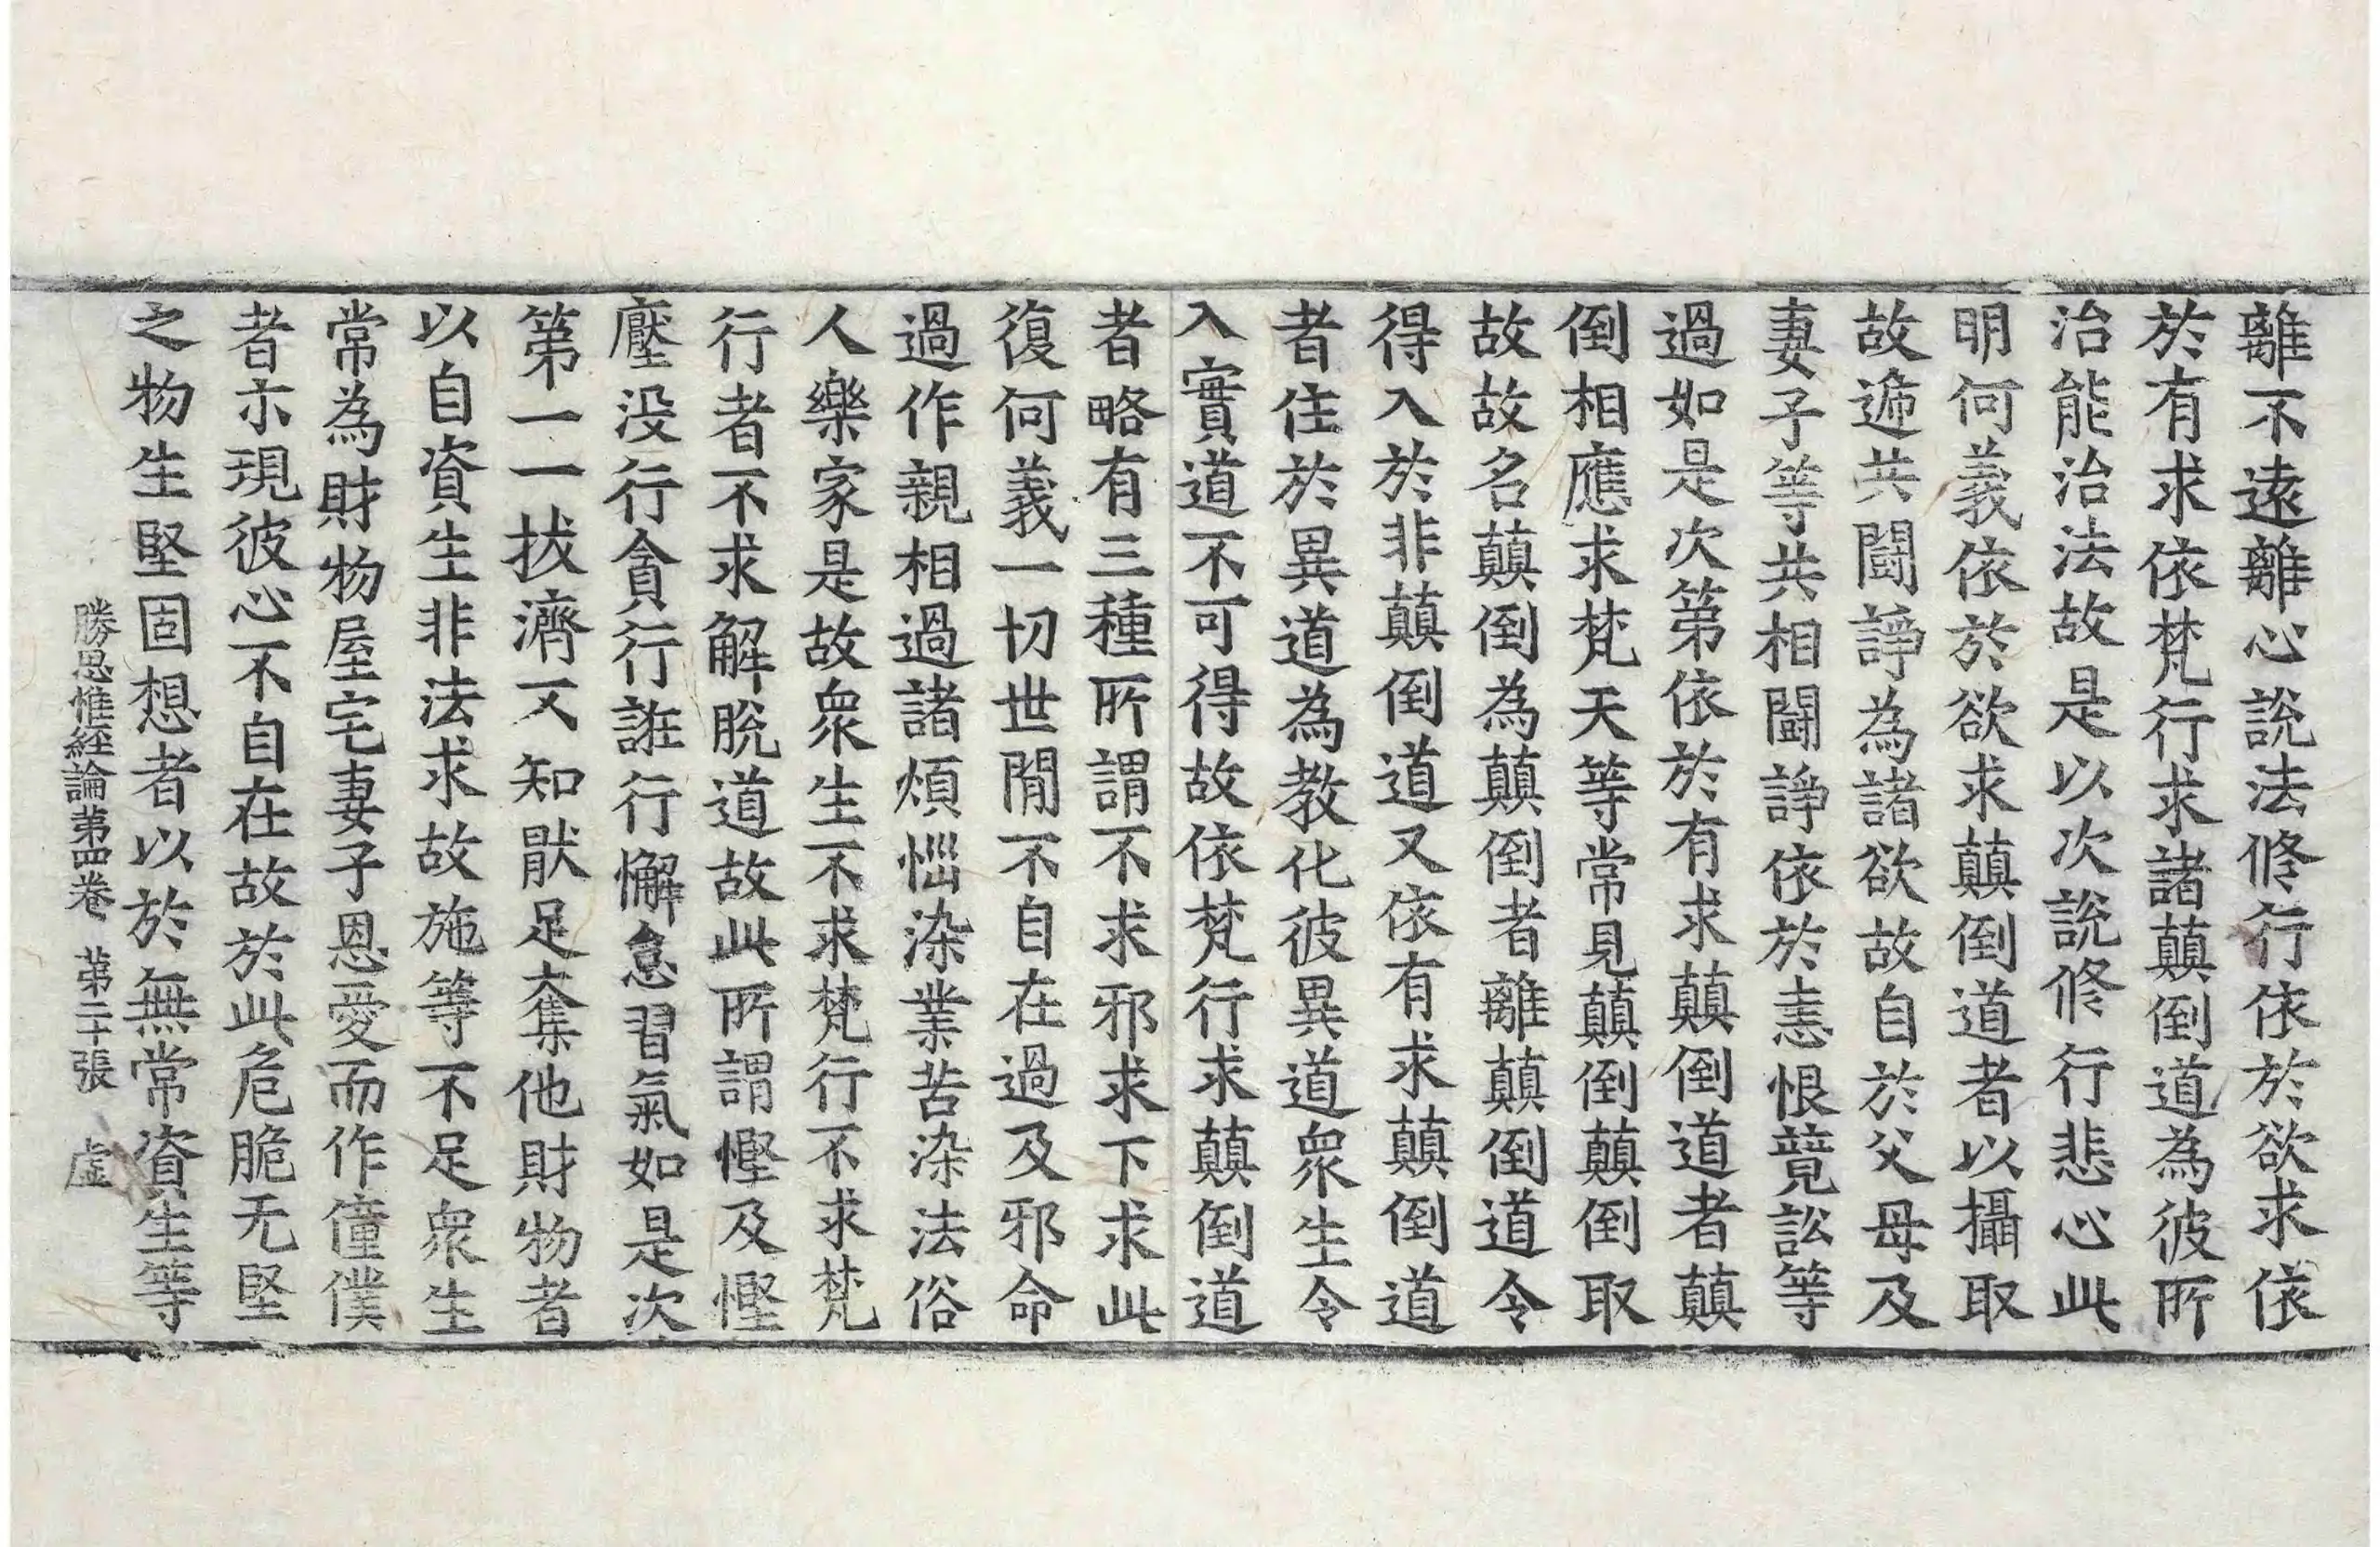 離不遠離心說法修行依於欲求依
於有求依梵行求諸顚倒道為彼所
治能治法故是以次說修行悲心此
明何義依於欲求顚倒道者以攝取
故遞共鬪諍為諸欲故自於父母及
妻子等共相鬪諍依於恚恨竟訟等
過如是次第依於有求顚倒道者顚
倒相應求梵天等常見顚倒顚倒取
故故名顚倒為顚倒者離顚倒道令
得入於非顚倒道又依有求顚倒道
者住於異道為教化彼異道衆生令
入實道不可得故依梵行求顚倒道
者略有三種所謂不求邪求下求此
復何義一切世閒不自在過及邪命
過作親相過諸煩惱染業苦染法俗
人樂家是故衆生不求梵行不求梵
行者不求解脫道故此所謂慳及慳
壓没行貪行誑行懈怠習氣如是次
第一一拔濟又知猒足奪他財物者
以自資生非法求故施等不足衆生
常為財物屋宅妻子恩愛而作僮僕
者示現彼心不自在故於此危脆无堅
之物生堅固想者以於無常資生等
勝思惟經論第四卷 第二十張 虛